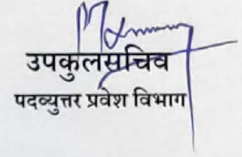 उपकुलसचिव
पदव्युत्तर प्रवेश विभाग